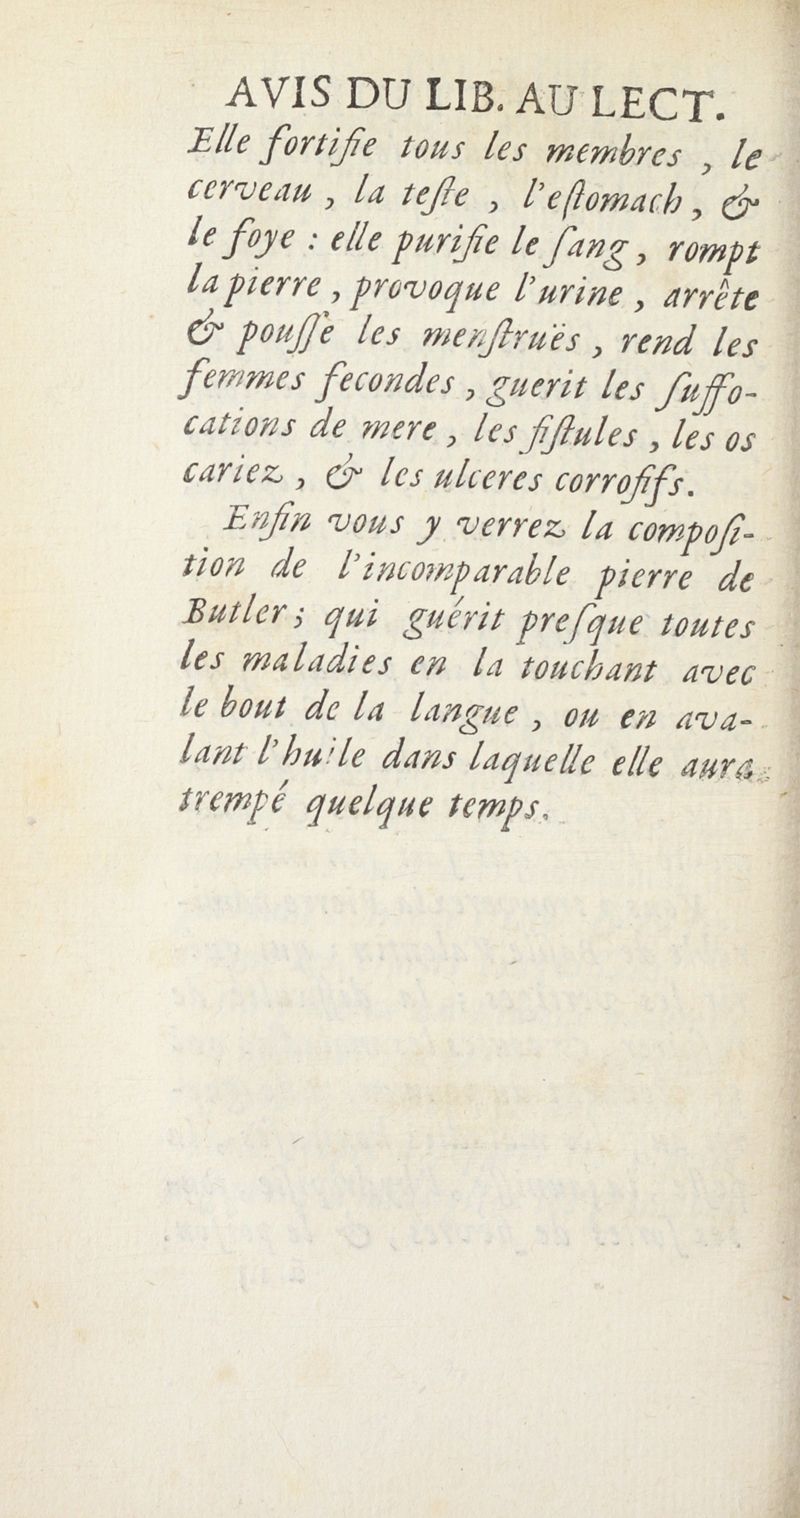 AVIS DU LIB. AU LECT.
Elle fortifie tous les membres , le
cerveau , la teſte , l'eſtomach , &
le foye : elle purifie le ſang , rompt
la pierre , provoque l'urine , arrête
& pouſſe les menſtruës , rend les
femmes fecondes , guerit les ſuffo-
cations de mere , les fiſtules , les os
cariez , & les ulceres corroſifs.
Enfin vous y verrez la compoſi-
tion de l'incomparable pierre de
Butler ; qui guérit preſque toutes
les maladies en la touchant avec
le bout de la langue , ou en ava-
lant l'huile dans laquelle elle aura
trempé quelque temps.